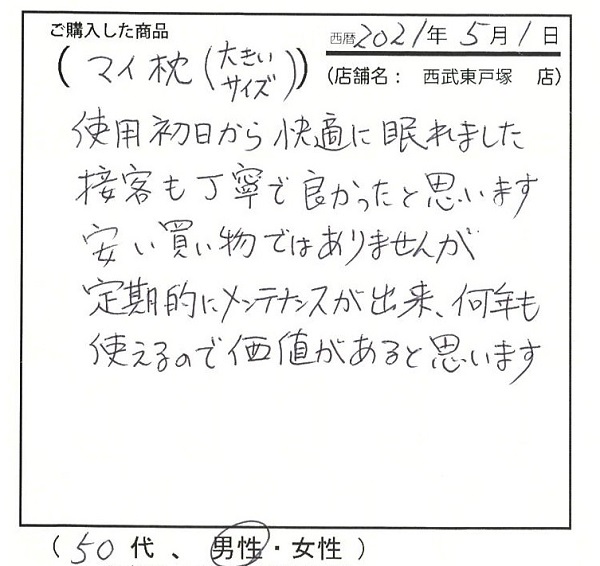 ご購入した商品
西暦2021年5月1日
(マイ枕(大きい
サイズ))
(店舗名： 西武東戸塚 店)
使用初日から快適に眠れました
接客も丁寧で良かったと思います
安い買い物ではありませんが
定期的にメンテナンスが出来、何年も
使えるので価値があると思います
(50代、男性・女性)